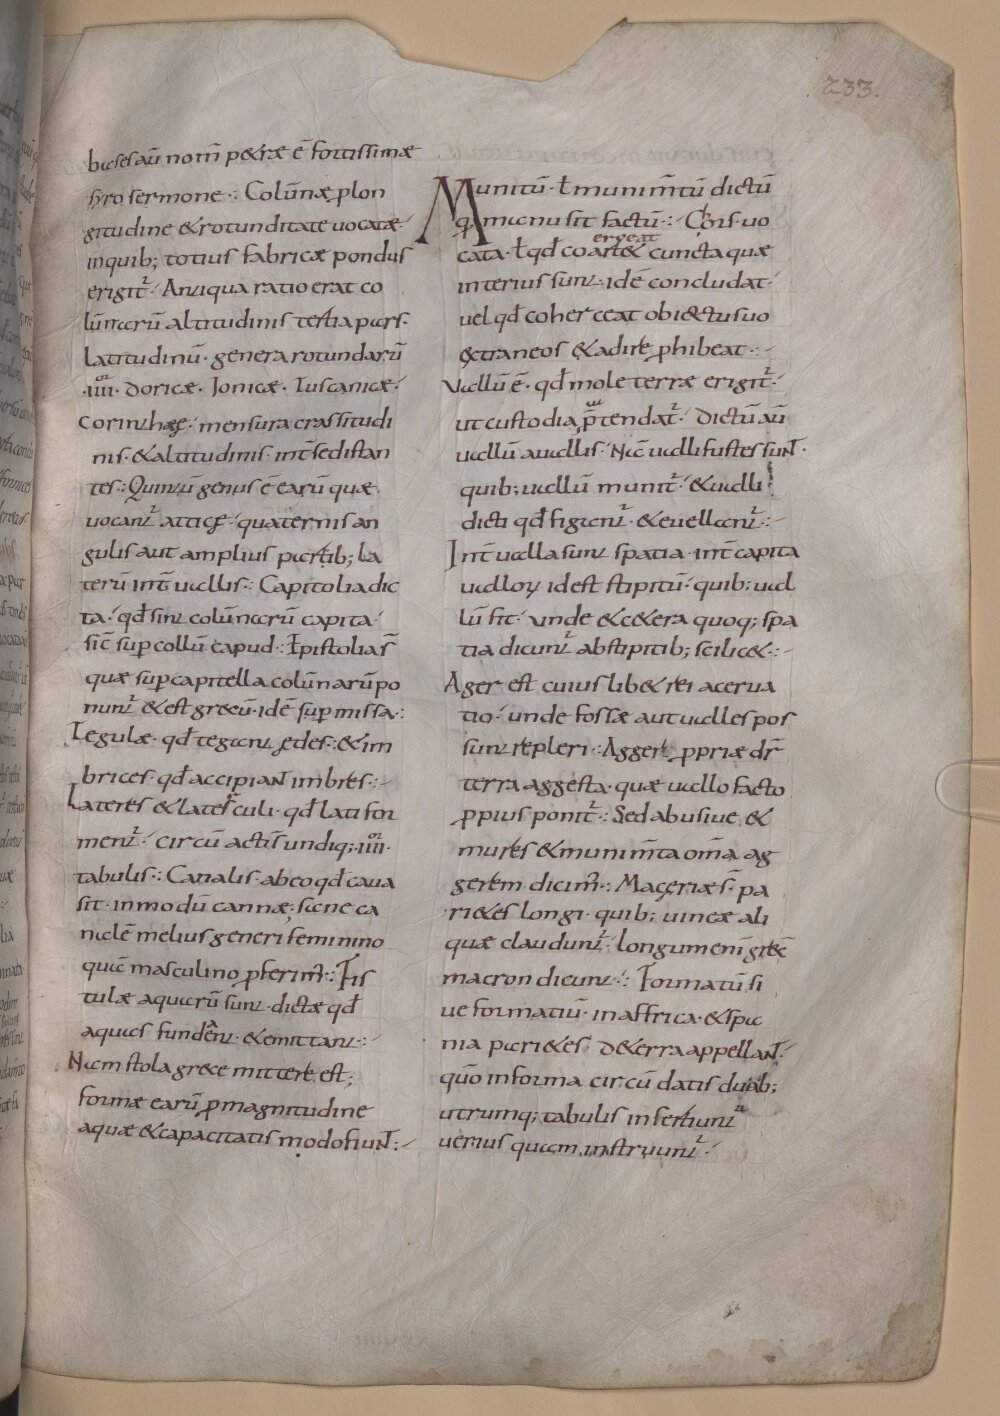 233.
buc sesaū nom̄ p&ræ ē fortissimæ
hro sermone·: Colūnæ plon
gitudine &rotunditate uocatæ·
inquib; totius fabricæ pondus
erigit᷑· Antiqua ratio erat co
lūnarū altitudinis tertia pars·
latitudinū· genera rotundarū
·iiii^or· doricæ· Jonicæ· Tuscanicæ·
corinthæ· mensura crassitudi
nis· &altitudinis· int̄ se distan
tes·: Quintū genus ē earū quæ
uocant᷑ atticę· quaternis an
gulis aut amplius partib; la
terū int̄ uallis·: Capitolia dic
ta· qđ sint colūnarū capita·
sic̄ sup collū capud·: Epistolia s̄
quæ sup capitella colūnarū po
nunt᷑ & est grecū· idē sup missa·:
Tegulæ· qđ tegant ędes·: &im
brices· qđ accipiant imbres·:
Lateres & laterculi· qđ lati for
ment᷑· circū actis undiq;· iiii^or·
tabulis·: Canalis· ab eo qđ caua
sit· inmodū cannæ; sane ca
nalē melius generi feminino
quā masculino ꝓferim᷑·: Fis
tulæ aquarū sunt· dictæ qđ
aquas fundent· &emittant·:
Nam stola grece mittere est;
formæ earū ꝓmagnitudine
aquæ &capacitatis modofiunt·:
Munitū· ł munim̄tū dictū
qa manu sit factū·: Cors· uo
erceat
cata· ł qđ coart& cuncta quæ
interius sunt· idē concludat·
uel qđ coherceat obiectu suo
extraneos &adire ꝓhibeat·:
Vallū ē· qđ mole terræ erigit᷑·
ut custodia p̄tendat᷑· dictū aū
uallū auallis· Nā ualli fustes sunt·
quib; uallū munit᷑· &ualli
dicti qđ figant᷑· &euellant᷑·:
Int̄ ualla sunt spatia· int̄ capita
ualloꝝ id est stipitū· quib; ual
lū fit· unde &c&era quoq; spa
tia dicunt᷑ abstipitib; scilic&·:
Ager est cuiuslib& rei acerua
tio· unde fossæ aut ualles pos
sunt repleri·: Agger ꝓpriæ dr̄
terra aggesta· quæ uallo facto
ꝓpius ponit᷑·: Sed abusiue &
mures &munim̄ta om̄a ag
gerem dicim᷑·: Maceriæ s̄· pa
ri&es longi· quib; uineæ ali
quæ claudunt᷑· longum enī grec̄
macron dicunt·: Formatū si
ue formatiū· inaffrica· &spa
nia pari&es d&erra appellant·
quō in forma circū datis duab;
utrumq; tabulis insertiunt᷑
uerius quam instruunt᷑·